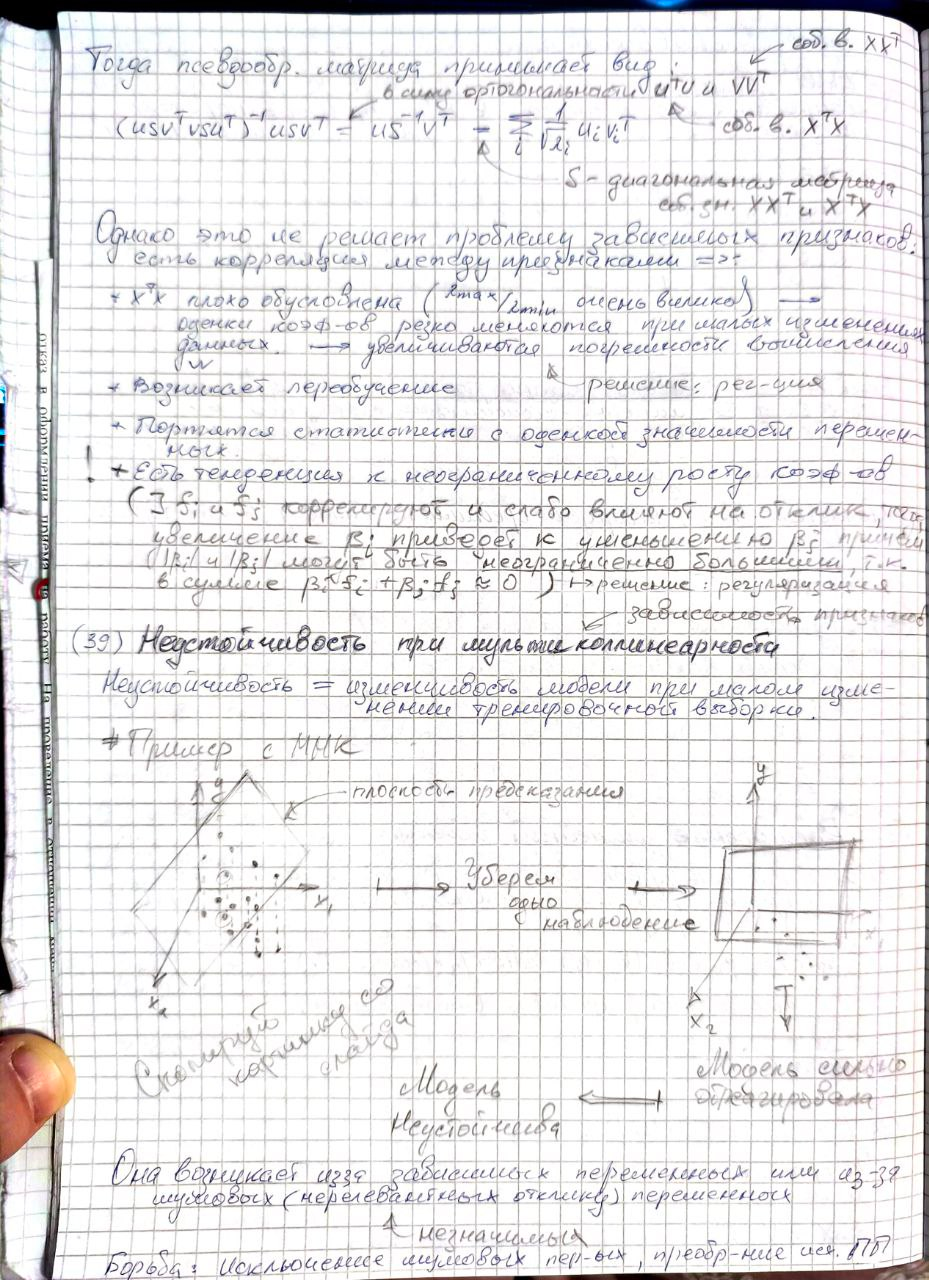 соб. в. XXᵀ
Тогда псевдообр. матрица принимает вид:
в силу ортогональности UᵀU и VVᵀ
(USVᵀVSUᵀ)⁻¹USVᵀ = US⁻¹Vᵀ = Σᵢ 1/√λᵢ uᵢvᵢᵀ
соб. в. XᵀX
S - диагональная матрица
соб. зн. XXᵀ и XᵀX
Однако это не решает проблему зависимых признаков:
есть корреляция между признаками =>:
+ XᵀX плохо обусловлена (λmax/λmin очень велико) →
оценки коэф-ов резко меняются при малых изменениях
данных. → увеличиваются погрешности вычисления
+ Возникает переобучение
решение: рег-ция
+ Портятся статистики с оценкой значимости перемен-
ных.
! + Есть тенденция к неограниченному росту коэф-ов
(] fᵢ и fⱼ коррелируют и слабо влияют на отклик,
увеличение βᵢ приведет к уменьшению βⱼ причем
|βᵢ| и |βⱼ| могут быть неограниченно большими, т.к.
в сумме βᵢfᵢ + βⱼfⱼ ≈ 0 ) ↦ решение: регуляризация
зависимость признаков
(39) Неустойчивость при мультиколлинеарности
Неустойчивость = изменчивость модели при малом изме-
нении тренировочной выборки.
+ Пример с МНК
y
плоскость предсказания
y
Уберем
одно
наблюдение
x₁
x₁
x₂
x₂
Скопируй
картинку со
слайда
Модель сильно
отреагировала
Модель
Неустойчива
Она возникает из-за зависимых переменных или из-за
шумовых (нерелевантных отклику) переменных
незначимых
Борьба: Исключение шумовых пер-ых, преобр-ние исх. ПП
отказ в оформлении приема на работу. На проведение в отношении